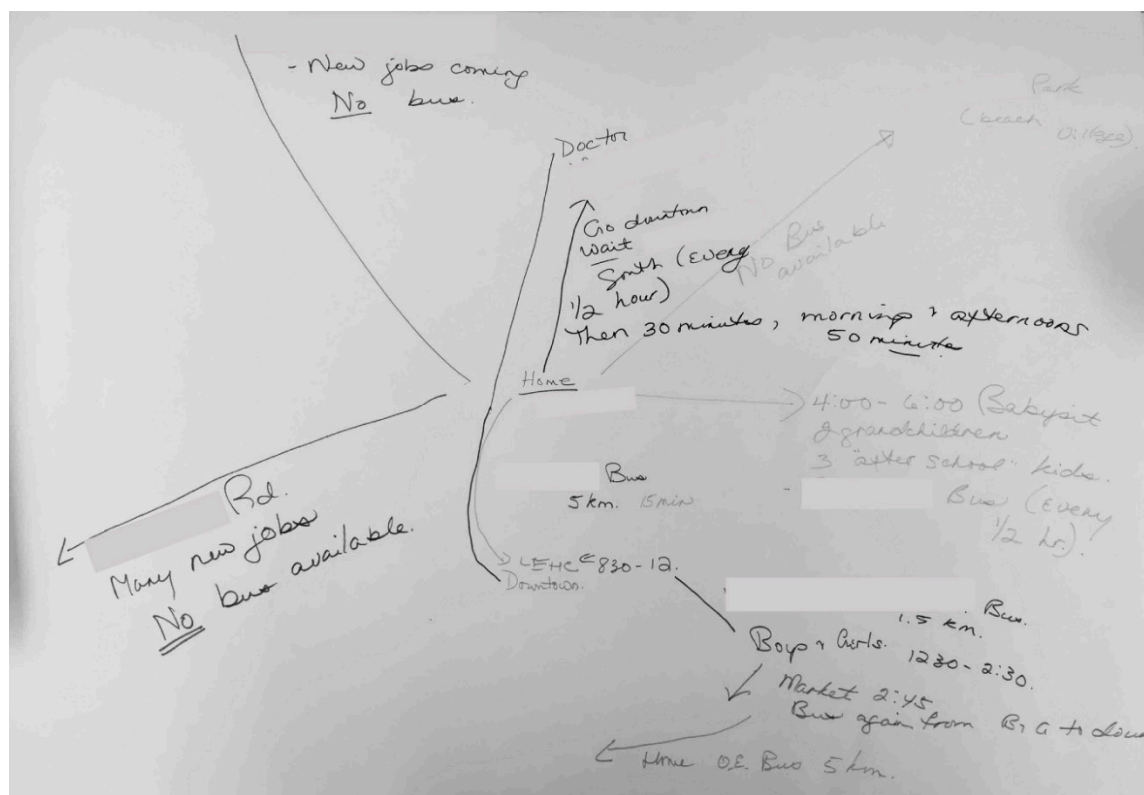 - New jobs coming
No bus.
Park
(beach
Doctor
Go downtown
wait
South (every
1/2 hour)
Then 30 minutes, mornings & afternoons
50 minutes
No Bus
available
Home
4:00-6:00 Babysit
2 grandchildren
3 "after school" kids.
- Bus (Every
1/2 hr).
Bus
5 km. 15min
Rd.
Many new jobs
No bus available.
LEHC 830-12.
Downtown.
Bus.
1.5 km.
Boys & Girls. 1230-2:30.
Market 2:45
Bus again from B & G to down
Home O.E. Bus 5 km.